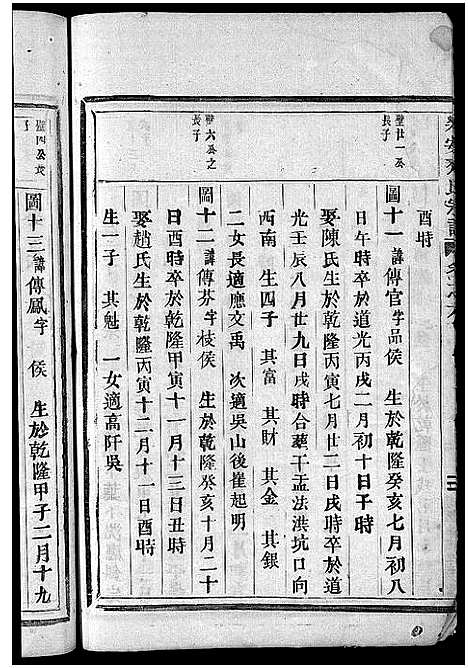 酉時
璧廿一公
長子
圖十一諱傳官字品侯　生於乾隆癸亥七月初八
日午時卒於道光丙戌二月初十日子時
娶陳氏生於乾隆丙寅七月廿二日戌時卒於道
光壬辰八月廿九日戌時合葬于盂法洪坑口向
西南　生四子　其富　其財　其金　其銀
二女長適應文禹　次適吳山後崔起明
璧六公之
長子
圖十二諱傳芬字枝侯　生於乾隆癸亥十月二十
日酉時卒於乾隆甲寅十一月十三日丑時
娶趙氏生於乾隆丙寅十二月十一日酉時
生一子　其魁　一女適高阡吳
璧四公長
子
圖十三諱傳鳳字　侯　生於乾隆甲子二月十九